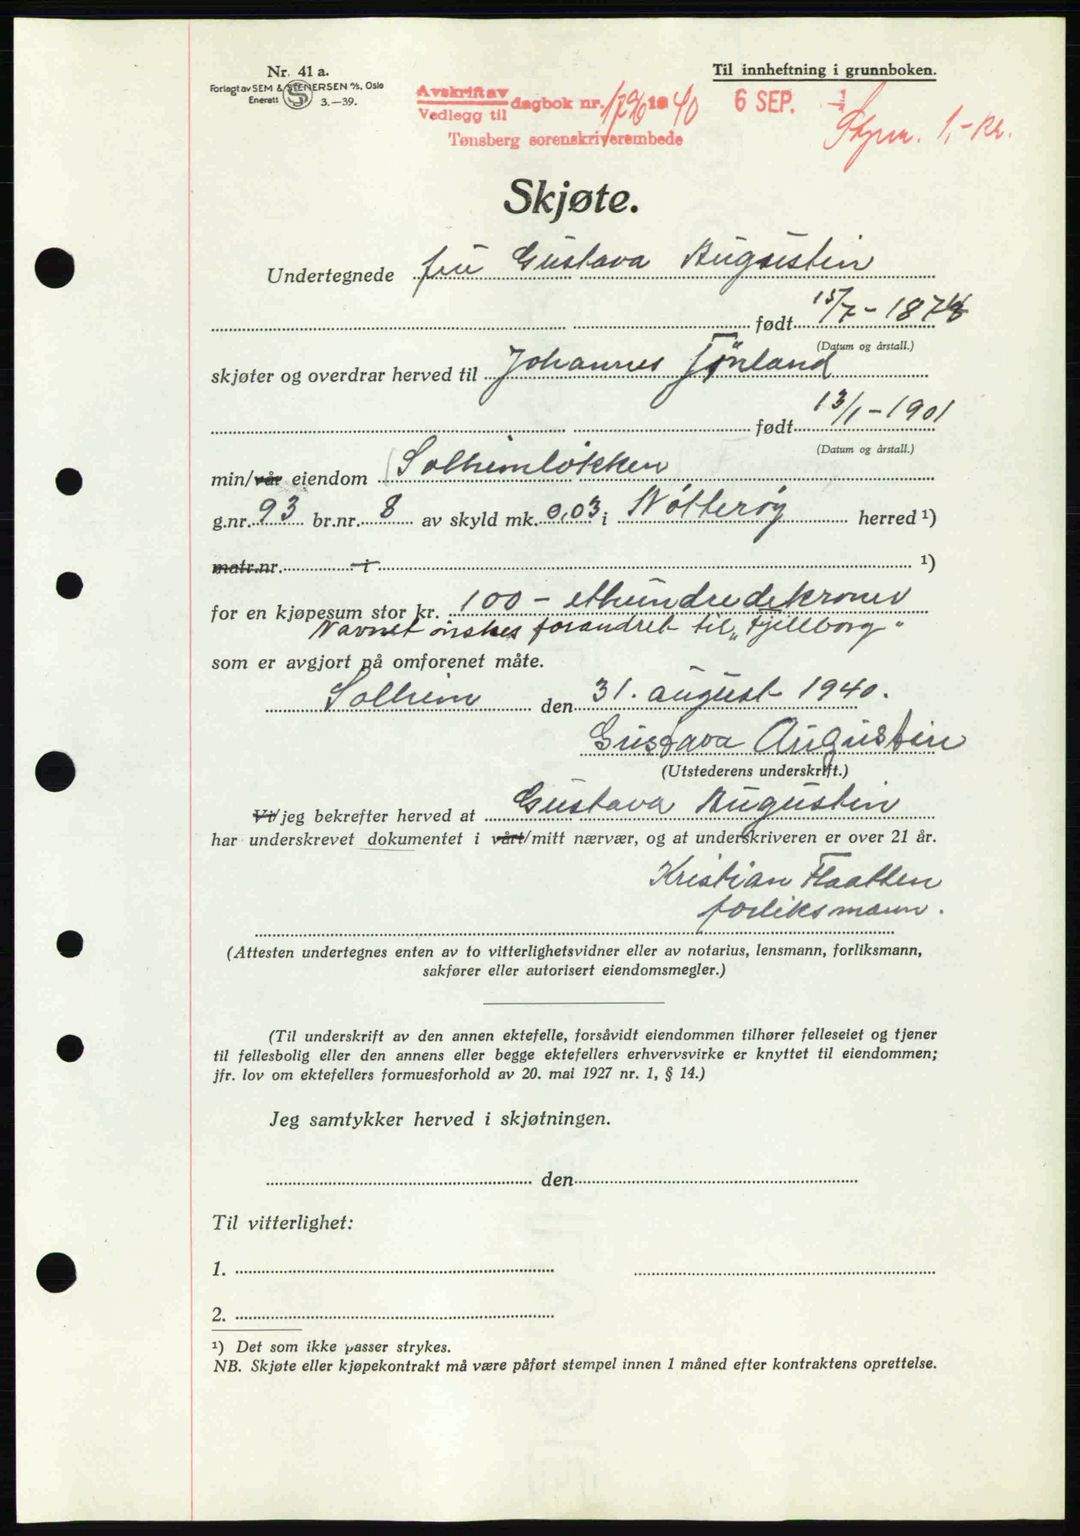 Nr. 41 a.
Til innheftning i grunnboken.
Forlagt av SEM & STENERSEN A/S, Oslo
Enerett S 3.—39.
Avskrift av
Vedlegg til dagbok nr. 19 40
6 SEP.
Tønsberg sorenskriverembede
Stpm. 1,- kr.
Skjøte.
Undertegnede fru Gustava Augustin
født 15/7 - 1878
(Datum og årstall.)
skjøter og overdrar herved til Johannes Tönland
født 13/1 - 1901
(Datum og årstall.)
min/vår eiendom Solheimløkken
g.nr. 93 br.nr. 8 av skyld mk. 0,03 i Nøtterøy herred ¹)
matr.nr. i ¹)
for en kjøpesum stor kr. 100 - ethundredekroner
Navnet ønskes forandret til „Fjellborg"
som er avgjort på omforenet måte.
Solheim den 31. august 1940.
Gustava Augustin
(Utstederens underskrift.)
Vi/jeg bekrefter herved at Gustava Augustin
har underskrevet dokumentet i vårt/mitt nærvær, og at underskriveren er over 21 år.
Kristian Flaatten
forliksmann.
(Attesten undertegnes enten av to vitterlighetsvidner eller av notarius, lensmann, forliksmann,
sakfører eller autorisert eiendomsmegler.)
(Til underskrift av den annen ektefelle, forsåvidt eiendommen tilhører felleseiet og tjener
til fellesbolig eller den annens eller begge ektefellers erhvervsvirke er knyttet til eiendommen;
jfr. lov om ektefellers formuesforhold av 20. mai 1927 nr. 1, § 14.)
Jeg samtykker herved i skjøtningen.
den
Til vitterlighet:
1.
2.
¹) Det som ikke passer strykes.
NB. Skjøte eller kjøpekontrakt må være påført stempel innen 1 måned efter kontraktens oprettelse.